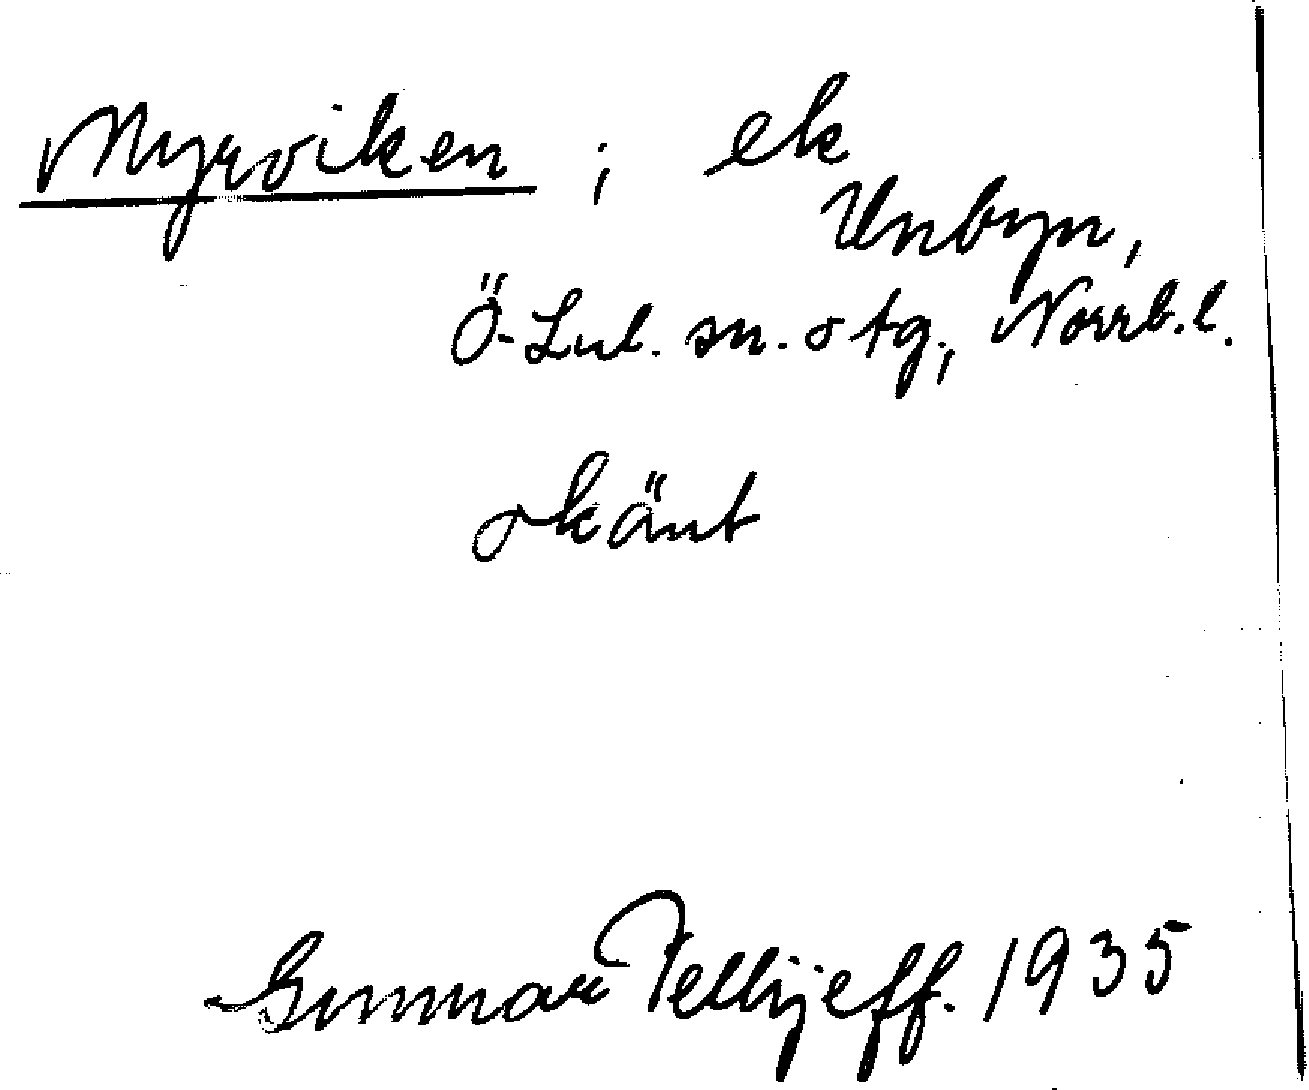 Myrviken ; ek
Unbyn,
Ö-Lul. sn. o tg., Norrb. l.
okänt
Gunnar Pellijeff. 1935